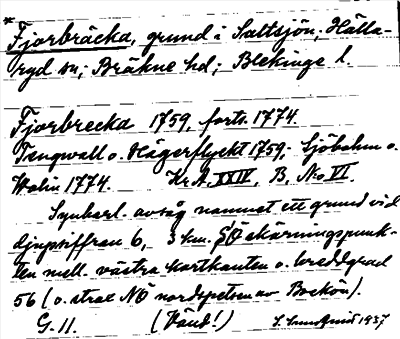 * Fjorbräcka, grund i Saltsjön; Hälla-
ryd sn; Bräkne hd; Blekinge l.
Fjorbrecka 1759, forts. 1774.
Tengwall o. Hägerflyckt 1759; Sjöbohm o.
Wolin 1774. Kr.A. XXIV, B, No VI.
Synbarl. avsåg namnet ett grund vid
djupsiffran 6, 3 km. SÖ skärningspunk-
ten mell. västra kartkanten o. breddgrad
56 (o. strax NÖ nordspetsen av Bockön).
G. 11. (Vänd!) S. Sundquist 1937